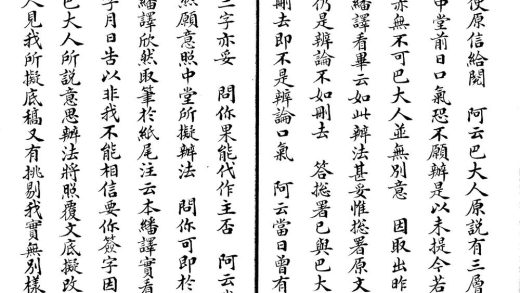 使原信給閱　阿云巴大人原說有三層
中堂前日口氣恐不願辦是以未提今若
亦無不可巴大人並無別意　因取出昨
繙譯看畢云如此辦法甚妥惟總署原文
仍是辨論不如刪去　答總署已與巴大
刪去即不是辨論口氣　阿云當日曾有
三字亦妥　問你果能代作主否　阿云
然願意照中堂所擬辦法　問你可即於
繙譯欣然取筆於紙尾注云本繙譯實看
字月日告以非我不能相信要你簽字因
巴大人所說意思辦法將照覆文底擬改
人見我所擬底稿又有挑剔我實無別樣